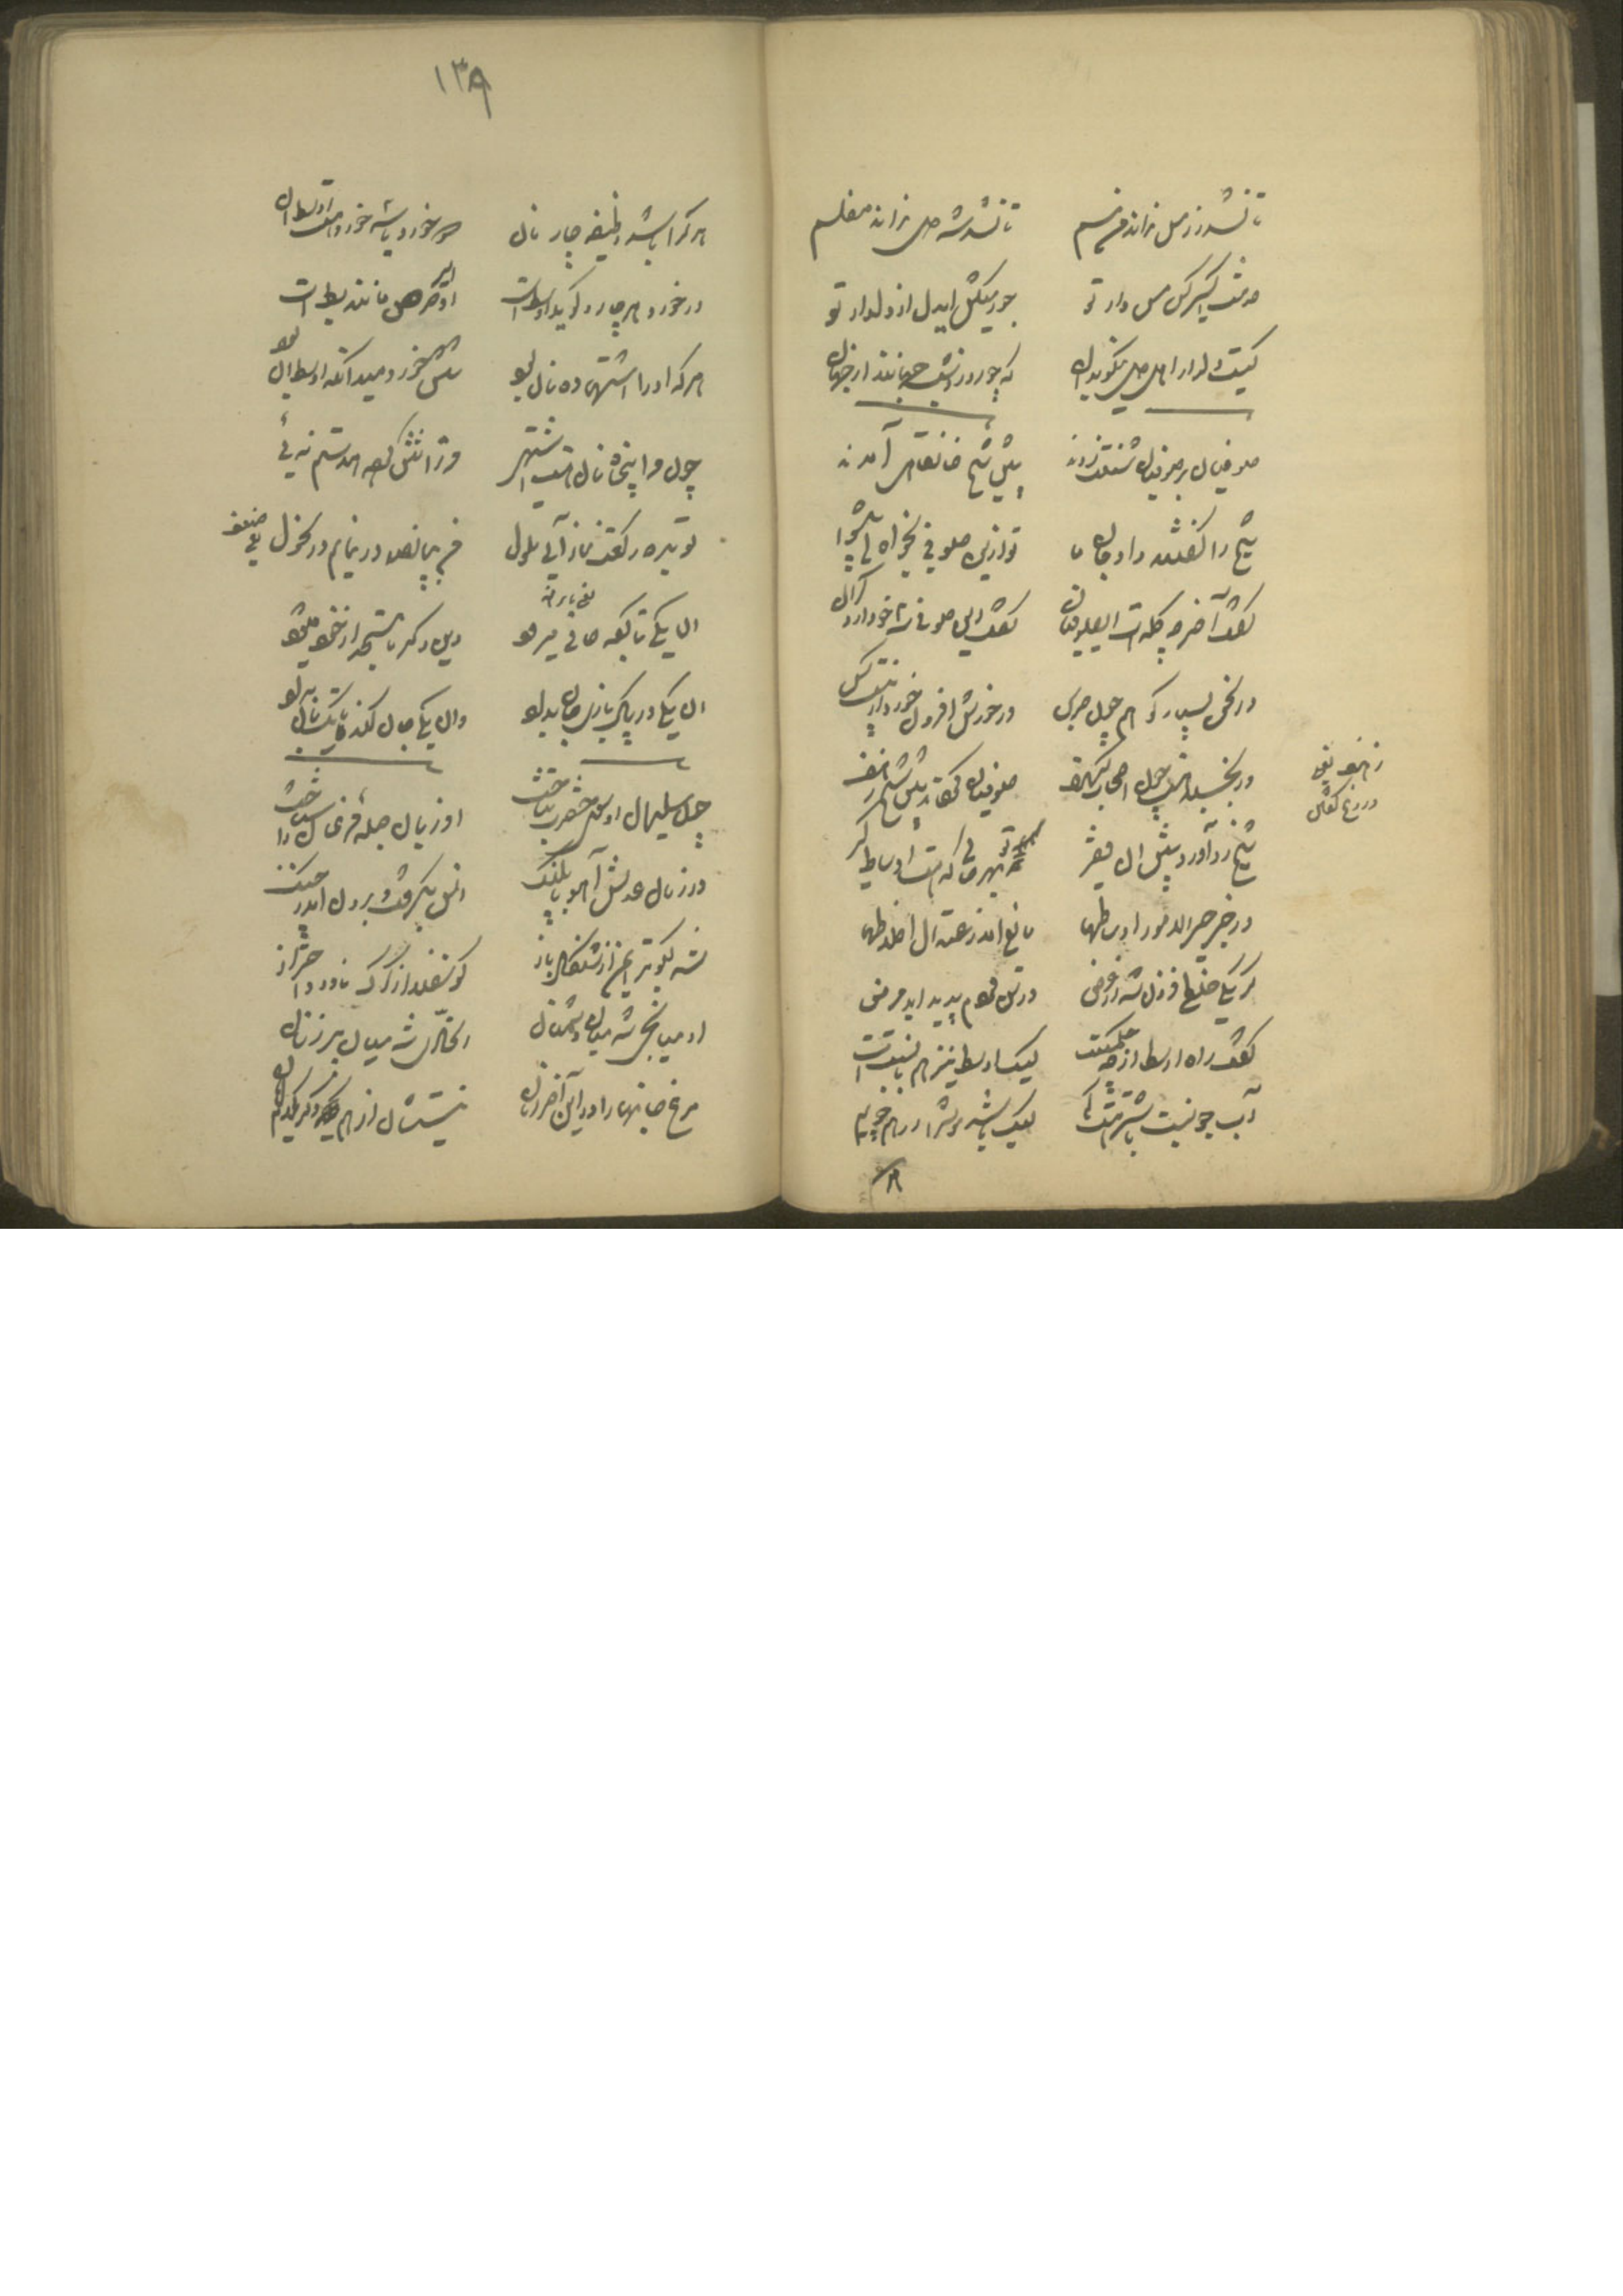 ۱۳۸
تا نشد زر مس نداند من مسم    تا نشد شه دل نداند مفلسم
خدمت اکسیر کن مس وار تو    جور میکش ایدل از دلدار تو
کیست دلدار اهل دل نیکو بدان    که چو روز و شب جهانند از جهان
صوفیان بر صوفیان شنعت زدند    پیش شیخ خانقاهی آمدند
شیخ را گفتند داد جان ما    تو ازین صوفی بخواه ای پیشوا
گفت آخر چه گله است ای صوفیان    گفت این صوفی سه خو دارد گران
در سخن بسیار گو همچون جرس    در خورش افزون خورد از بیست کس
ور بخسبد هست چون اصحاب کهف    صوفیان کردند پیش شیخ زحف
شیخ رو آورد پیش آن فقیر    ز هر حالی که هست اوساط گیر
در خبر خیر الامور اوساطها    مانع آمد ز اعتدال اخلاطها
گر یکی خلطی فزون شد از عرض    در تن مردم پدید آید مرض
گفت راه اوسط ار چه حکمتست    لیک اوسط نیز هم با نسبتست
آب جو نسبت باشتر هست کم    لیک باشد موش را آن همچو یم
هر کرا باشد وظیفه چار نان    دو خورد یا سه خورد هست اوسط آن
ور خورد هر چار اوسط است    او اسیر حرص مانند بط است
هر که او را اشتها ده نان بود    شش خورد میدانکه اوسط آن بود
چون مرا پنجاه نان هست اشتهی    مر ترا شش گرده همدستیم نی
تو بده رکعت نماز آیی ملول    من بپانصد در نیایم در نحول
آن یکی تا کعبه حافی میرود    وین دگر تا مسجد از خود میشود
آن یکی در پاک بازی جان بداد    وان یکی جان کند تا یک نان بداد
چون سلیمان از سوی حضرت بتاخت    او زبان جمله مرغان را شناخت
در زمان عدلش آهو با پلنگ    انس بگرفت و برون آمد ز جنگ
شد کبوتر ایمن از چنگال باز    گوسفند از گرگ ناورد احتراز
او میانجی شد میان دشمنان    اتحادی شد میان پرزنان
مرغ جانها را در این آخر زمان    نیستشان از همدگر یکدم امان